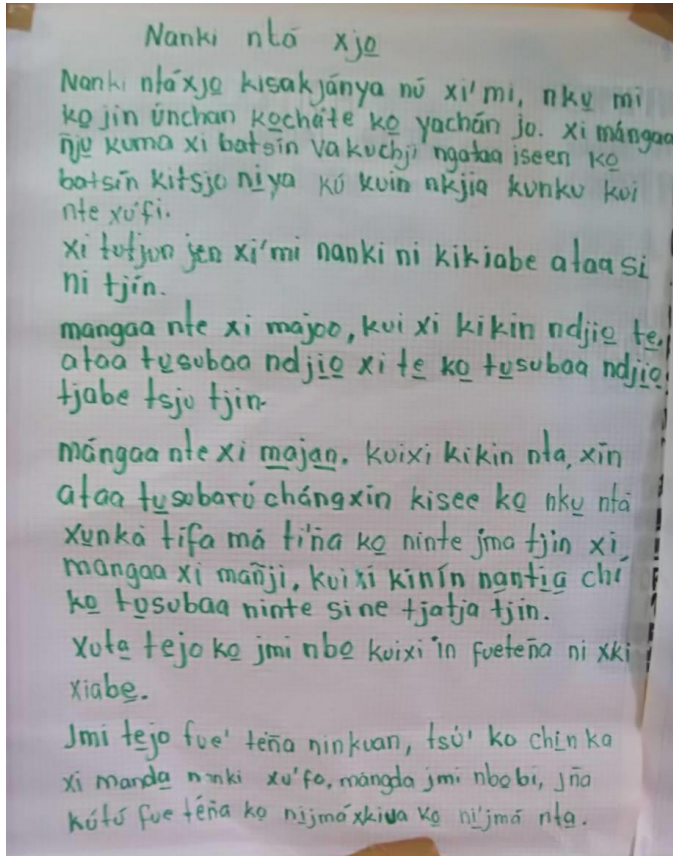 Nanki ntá xjo̱
Nanki ntáxjo̱ kisakjánya nú xi'mi, nku̱ mi
ko̱ jin únchan ko̱cháte ko̱ yachán jo. xi mángaa
ñju̱ kuma xi batsín vakuchji ngataa iseen ko̱
batsín kitsjo ni̱ya kú kuin nkjia̱ kunku kui
nte xu'fi.
xi tutjun jen xi'mi nanki ni kikiabe ataa si
ni tjín.
mangaa nte xi majoo, kui xi kikin ndji̱o̱ te̱,
ataa tu̱subaa ndji̱o̱ xi te̱ ko̱ tu̱subaa ndji̱o̱
tjabe tsju tjin.
mángaa nte xi ma̱ja̱n. kuixi kikin nta, xín
ataa tu̱subarú chángxin kisee ko̱ nku̱ ntá
xu̱nká tifa má ti'ña ko̱ ninte jma tjin xi,
mangaa xi mañji, kuixi kinín na̱ntia̱ chí
ko̱ to̱subaa ninte si ne tjatja tjin.
xuta̱ tejo ko̱ jmi nbo̱ kuixi 'in fueteña ni xki
xiabe̱.
Jmi te̱jo fue' teña ninkuan, tsú' ko chi̱n ka
xi manda̱ nanki xu'fo, mangda jmi nbo̱bi, jña
kútú fue téña ko̱ ni̱jmáxkiua ko̱ ni'jmá nta̱.